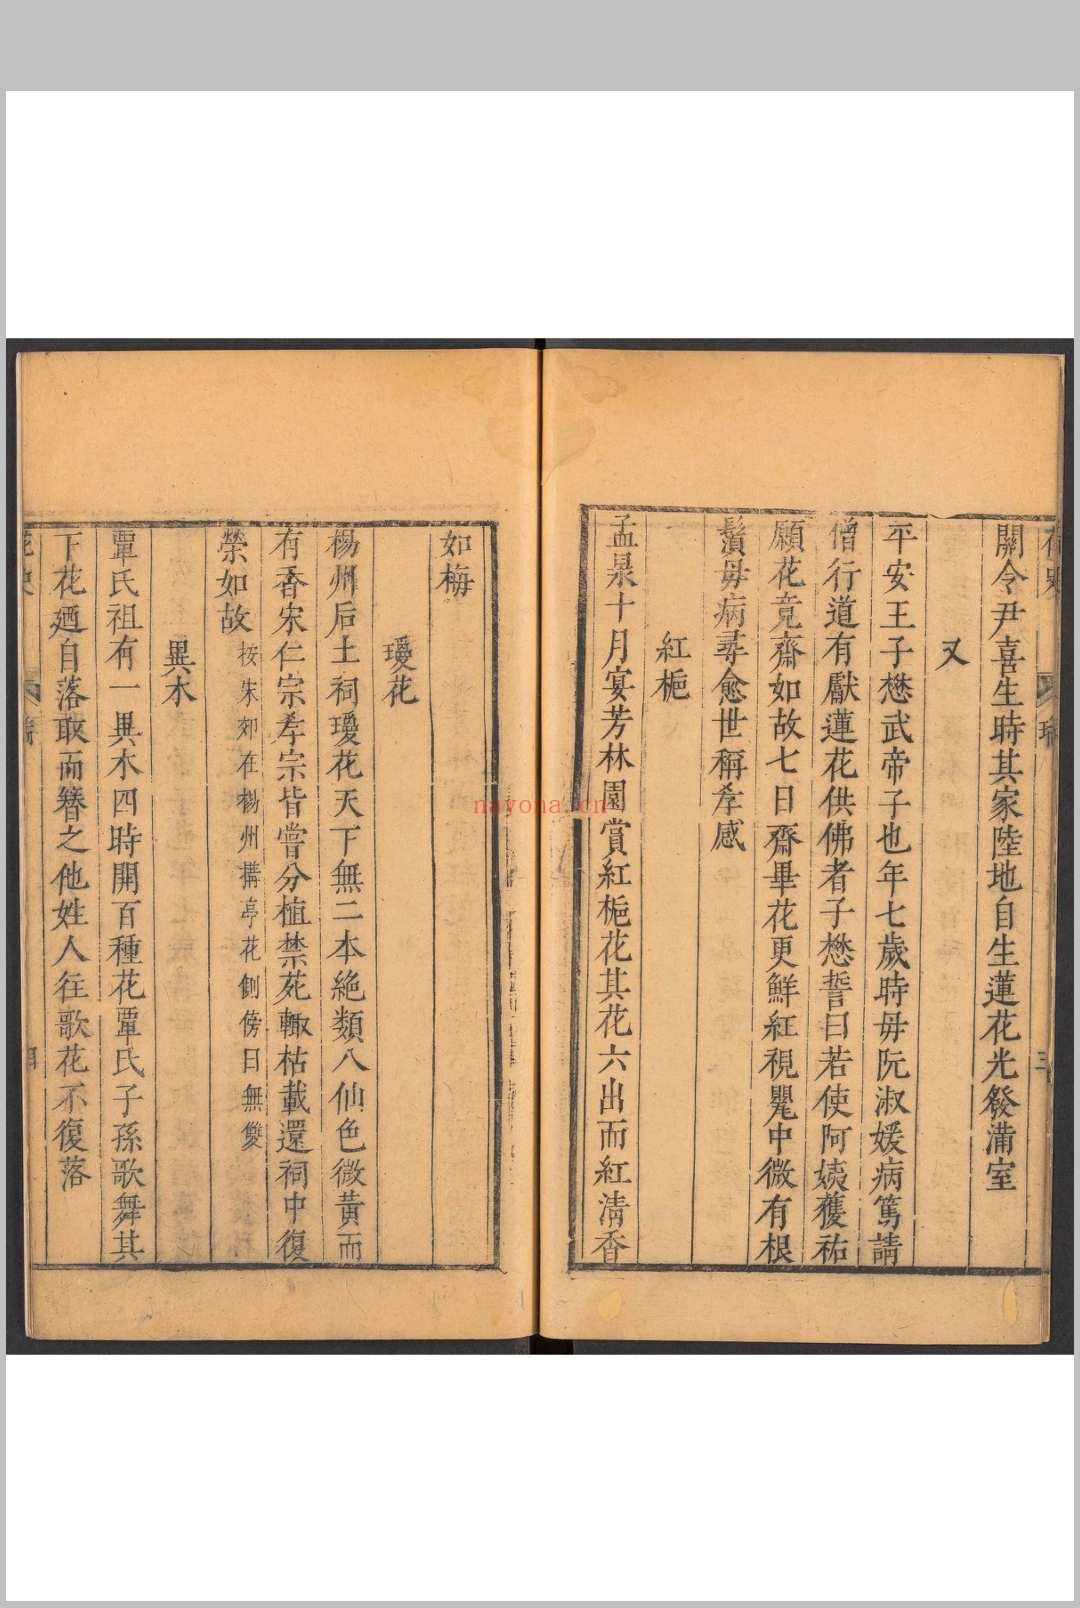 關令尹喜生時其家陸地自生蓮花光發滿室
又
平安王子懋武帝子也年七歲時毋阮淑媛病篤請
僧行道有獻蓮花供佛者子懋誓曰若使阿姨獲祐
願花竟齋如故七日齋畢花更鮮紅視甖中微有根
鬚毋病尋愈世稱孝感
紅梔
孟㫤十月宴芳林園賞紅梔花其花六出而紅清香
如梅
瓊花
楊州后土祠瓊花天下無二本絶類八仙色微黃而
有香宋仁宗孝宗皆嘗分植禁苑輙枯載還祠中復
榮如故 按朱郊在楊州搆亭花側傍曰無雙
異木
覃氏祖有一異木四時開百種花覃氏子孫歌舞其
下花廼自落取而簪之他姓人往歌花不復落
nayona.cn